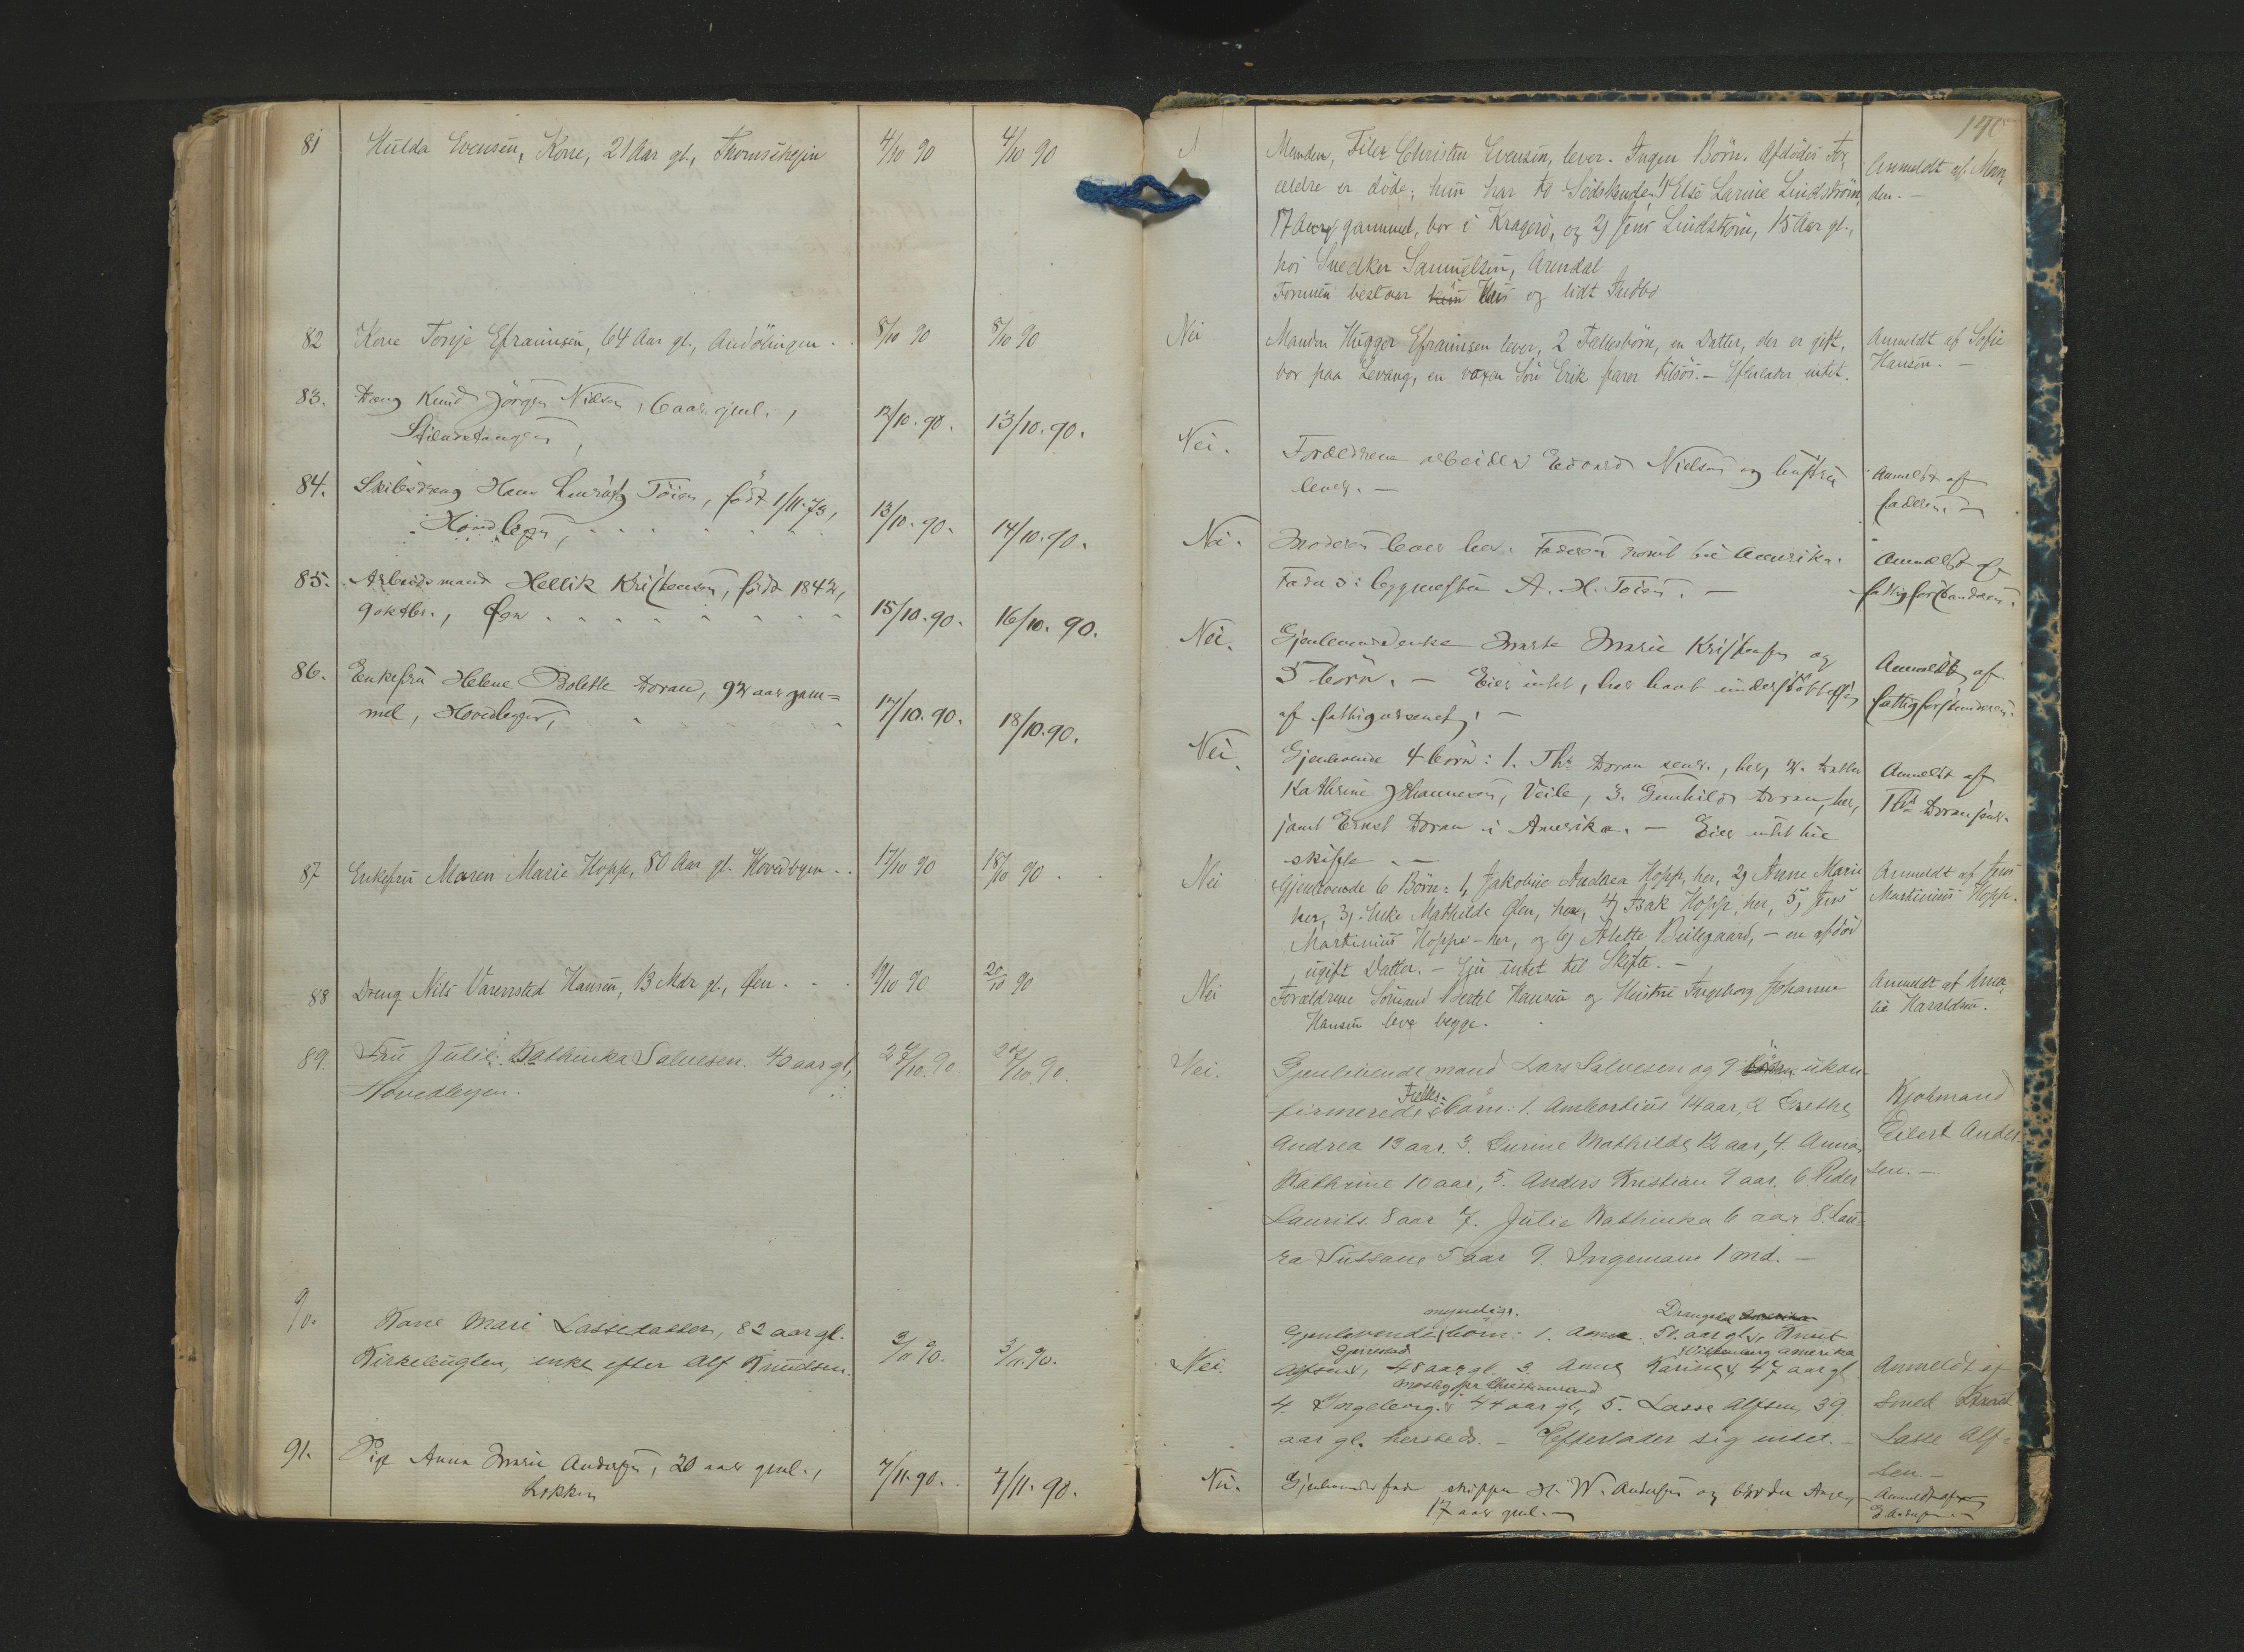 140
81 Hulda Evensen, Kone, 21 Aar gl., Thomeshejen 4/10 90 4/10 90
Manden, Filer Christen Evensen, lever. Ingen Börn. Afdödes For
ældre er döde; hun har to Södskende 1) Else Larine Lindström,
17 Aar gammel, bor i Kragerö, og 2) Jens Lindström, 15 Aar gl.,
hos Snedker Samuelsen, Arendal
Formuen bestaar hun Hus og lidt Indbo
Anmeldt af Man
den. -
82 Kone Tonje Efraimsen, 64 Aar gl., Andölingen . . 8/10 90 8/10 90
Nei Manden Hugger Efraimsen lever, 2 Fællesbörn, en Datter, der er gift,
bor paa Levang, en voxen Sön Erik farer tilsös. - Efterlader intet.
Anmeldt af Sofie
Hansen. -
83. Dreng Knud Jörgen Nielsen, 6 aar gml.,
12/10. 90. 13/10. 90.
Nei. Forældrene arbeider Edvard Nielsen og hustru
lever. -
Anmeldt af
faderen. -
84. Skibsdreng Hans Töien, födt 1/11. 73,
Hovedbyen, 13/10. 90. 14/10. 90.
Nei. Moderen lever her. Faderen reist til Amerika.
Fader : Byggmester A. H. Töien. -
Anmeldt af
fattigforstanderen.
85. Arbeidsmand Hellik Kristensen, födt 1842,
9 oktbr., Öen 15/10. 90. 16/10. 90.
Nei. Gjenlevende enke Marte Marie Kristensen og
5 börn. - Eier intet, har havt understöttelse
af fattigvæsenet. -
Anmeldt af
fattigforstanderen.
86. Enkefru Helene Bolette Doran, 92 aar gam=
mel, Hovedbyen, 17/10. 90. 18/10. 90.
Nei. Gjenlevende 4 börn: 1. Ths Doran senr., her, 2. Datter
Kathrine Johannesen, Veile, 3. Gunhild Doran, her,
samt Ernst Doran i Amerika. - Eier intet til
skifte. -
Anmeldt af
Ths Doran senr.
87 Enkefru Maren Marie Hopp, 80 Aar gl. Hovedbyen . . 17/10 90 18/10 90
Nei Gjenlevende 6 Börn: 1, Jakobine Andrea Hopp, her, 2) Anne Marie
her, 3) Enke Mathilde Öen, her, 4) Isak Hopp, her, 5) Jens
Martinius Hopp - her, og 6) Alette Beilegaard, - en afdöd
ugift Datter. - Eier intet til Skifte. -
Anmeldt af Jens
Martinius Hopp.
88 Dreng Nils Varensted Hansen, 13 Mdr gl., Öen . . 19/10 90 20/10 90
Nei Forældrene Sömand Bertel Hansen og Hustru Ingeborg Johanne
Hansen leve begge.
Anmeldt af Ama
lie Haraldsen.
89. Fru Julie Kathinka Salvesen. 40 aar gl,
Hovedbyen.
Nei. Gjenlevende mand Lars Salvesen og 9 ukon
firmerede Fælles- börn: 1. Ambortius 14 aar, 2 Grethe
Andrea 13 aar. 3. Gurine Mathilde 12 aar, 4. Anna
Kathrine 10 aar, 5. Anders Kristian 9 aar. 6. Peder
Laurits. 8 aar 7. Julie Kathinka 6 aar 8. Lau
ra Sussane 5 aar 9. Ingemane 1 md. -
Kjobmand
Eilert Ander
sen. -
90. Kone Mari Lassedatter, 82 aar gl.
Kirkebuglen, enke efter Alf Knudsen. 3/11 90. 3/11. 90.
myndige. Drangedal Amerika
Nei. Gjenlevende börn: 1. Anne 51. aar gl, 2. Knut
Gjerrestad amerika
Alfsen, 48 aar gl 3. Anne Karine, 47 aar gl
Christianssand
4. Ingeborg. 44 aar gl, 5. Lasse Alfsen, 39
aar gl. hersteds. - Efterlader sig intet. -
Anmeldt af
Smed
Lasse Alf-
sen. -
91. Pige Anna Marie Andersen, 20 aar gml.,
Lökken 7/11. 90. 7/11. 90.
Nei. Gjenlevende fader skipper H. W. Andersen og broder Aage,
17 aar gml. -
Anmeldt af